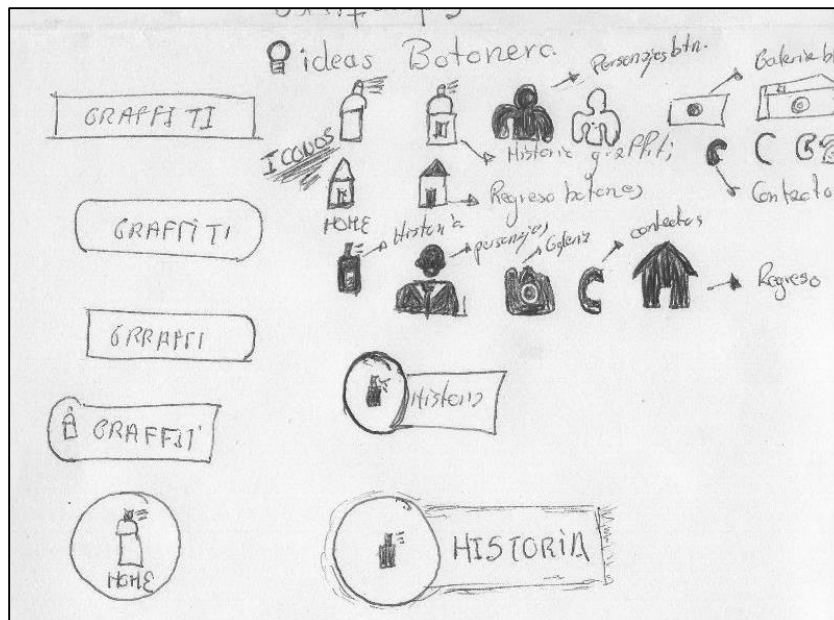 ideas Botonera
Personajes btn.
GRAFFITI
ICONOS
Historia graffiti
Contacto
HOME
Regreso botones
GRAFFITI
Historia
personajes
Galeria
contactos
Regreso
GRRAFFI
Historia
GRAFFITI
HISTORIA
HOME